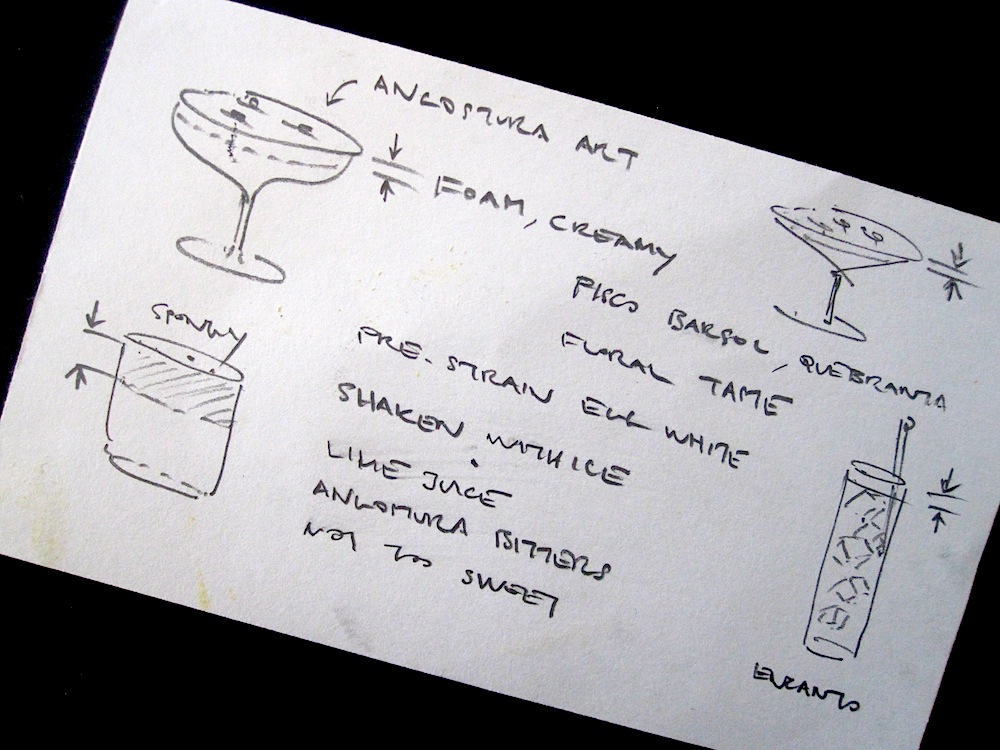 ANGOSTURA ART
FOAM, CREAMY
SPONGY
PISCO BARSOL, QUEBRANTA
FLORAL TAME
PRE-STRAIN EGG WHITE
SHAKEN WITH ICE
LIME JUICE
ANGOSTURA BITTERS
NOT TOO SWEET